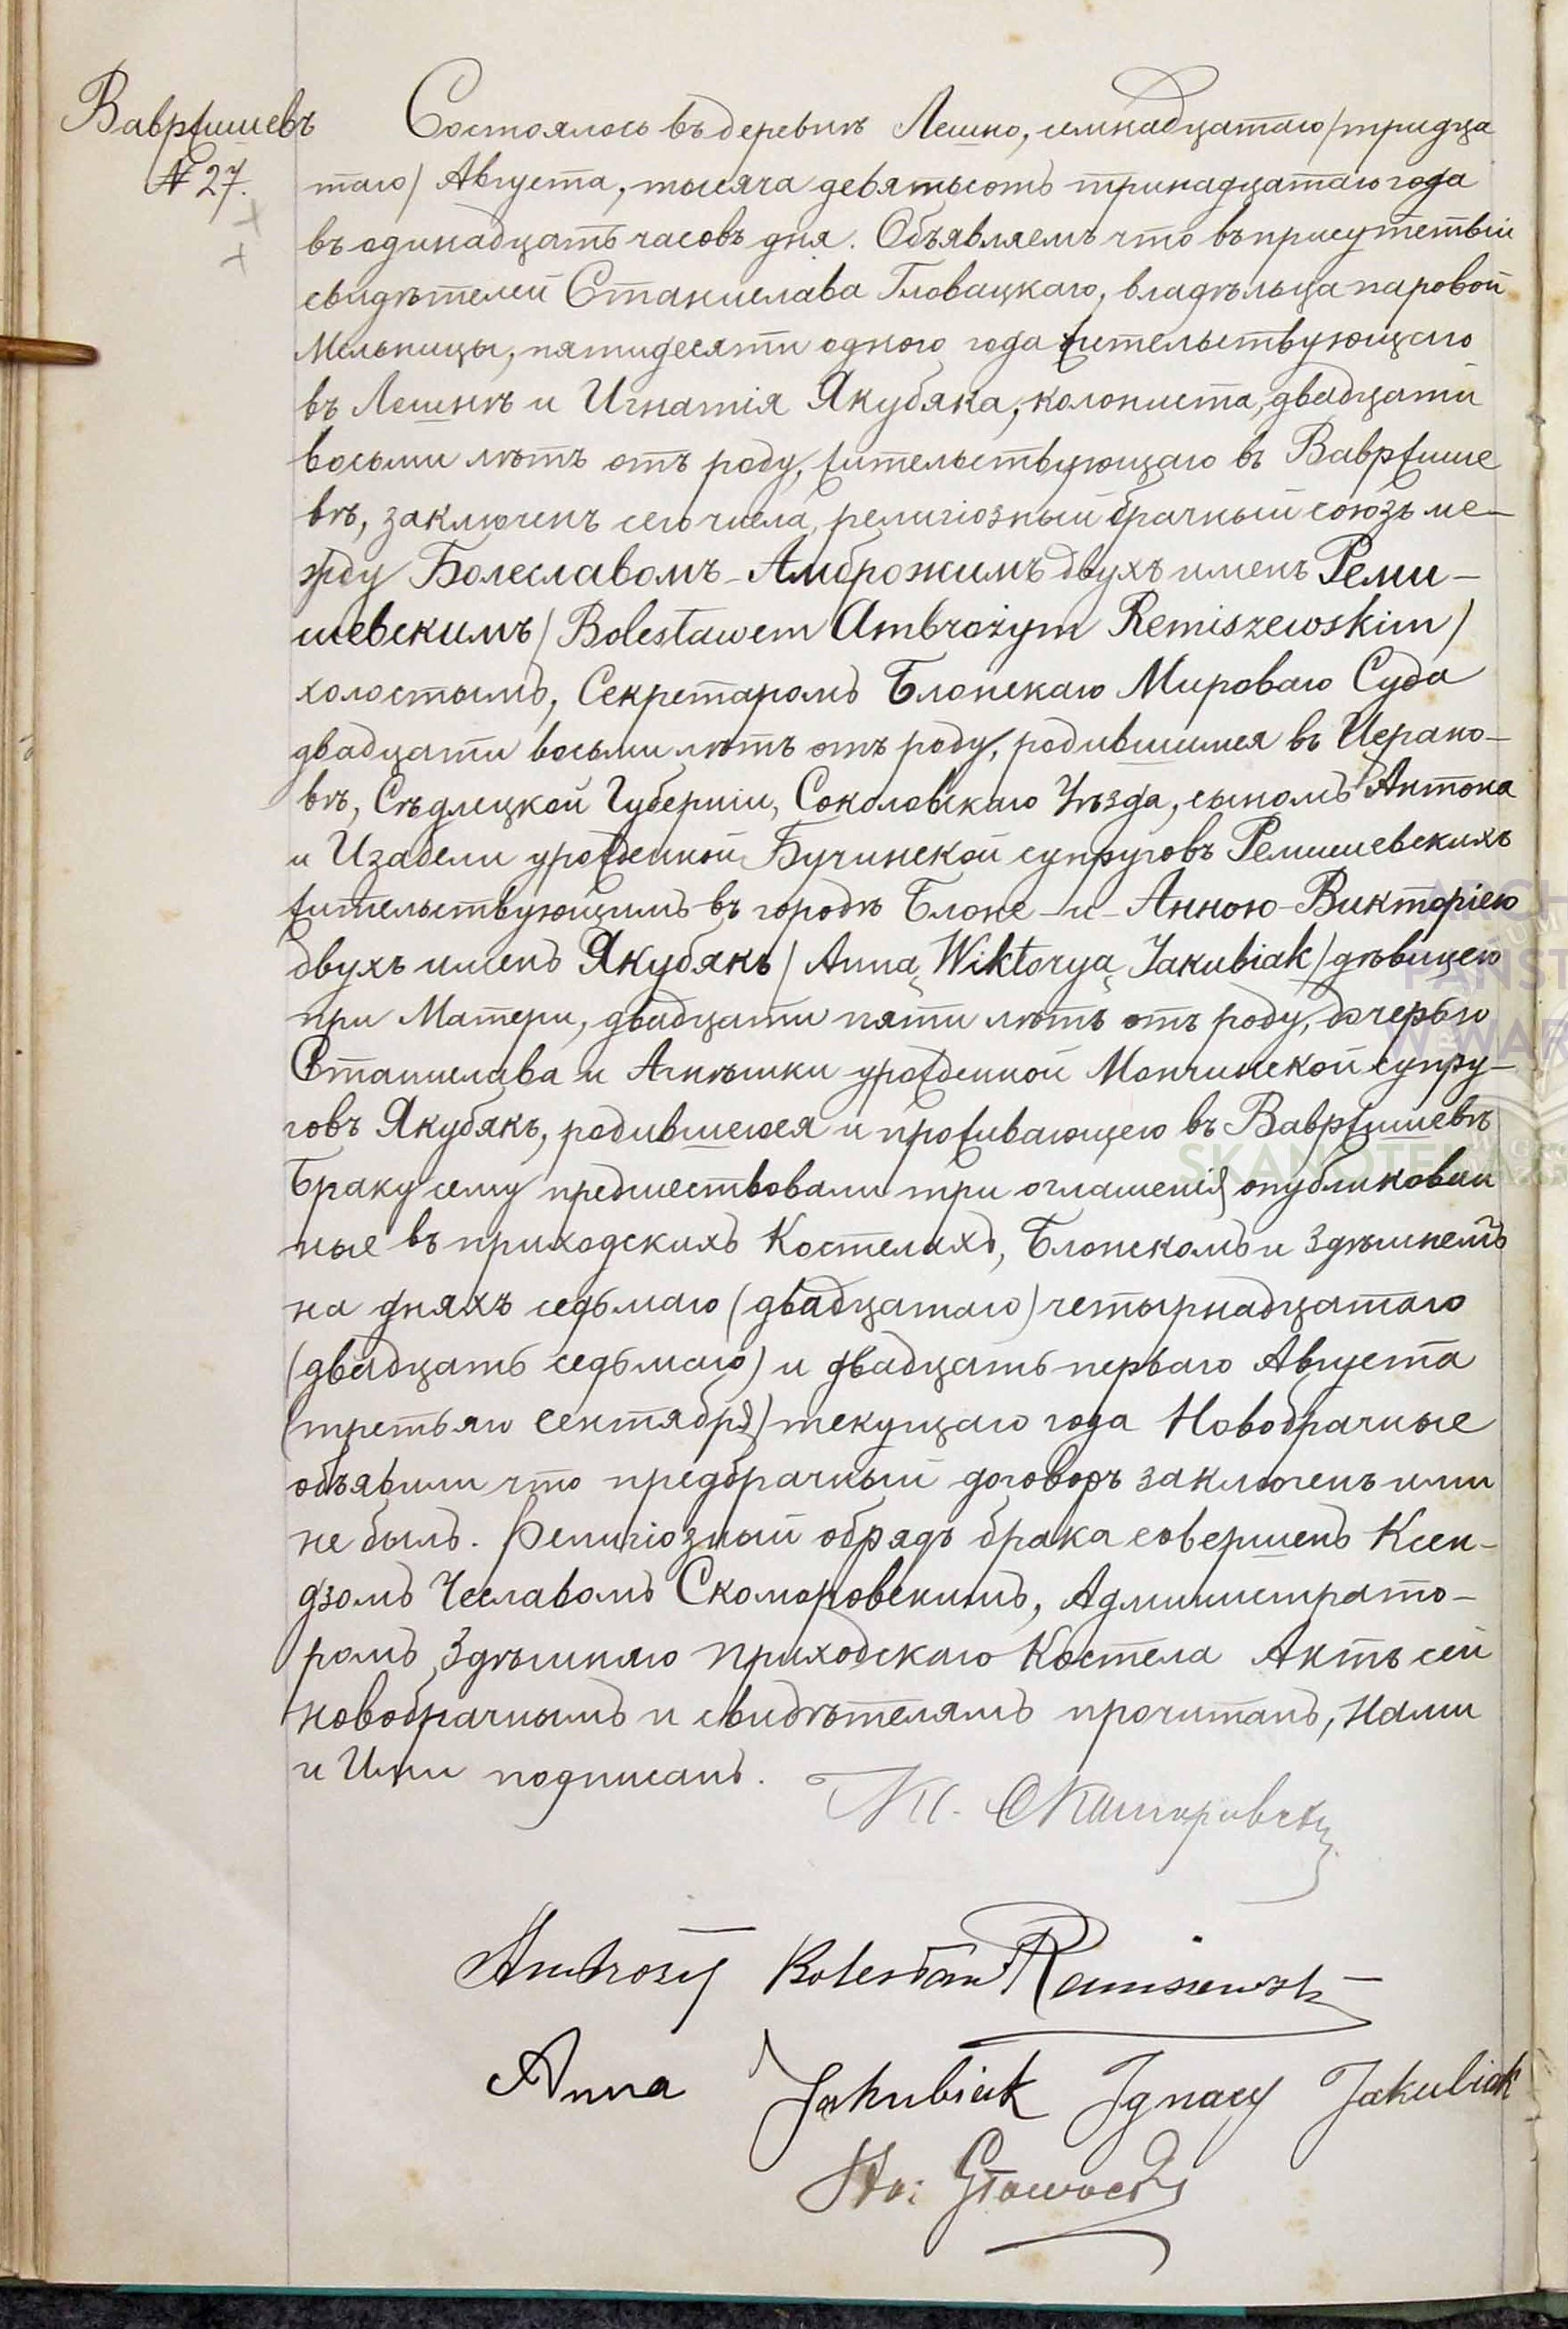 Вавржишевъ
№ 27.
Состоялось въ деревнѣ Лешно, семнадцатаго /тридца
таго/ Августа, тысяча девятьсотъ тринадцатаго года
въ одинадцать часовъ дня. Объявляемъ что въ присутствіи
свидѣтелей Станислава Гловацкаго, владѣльца паровой
Мельницы, пятидесяти одного года жительствующаго
въ Лешнѣ и Игнатія Якубяка, колониста, двадцати
восьми лѣтъ отъ роду, жительствующаго въ Вавржише
вѣ, заключенъ сего числа, религіозный брачный союзъ ме-
жду Болеславомъ-Амброжимъ двухъ именъ Реми-
шевскимъ /Bolesławem Ambrożym Remiszewskim/
холостымъ, Секретаромъ Блонскаго Мироваго Суда
двадцати восьми лѣтъ отъ роду, родившимся въ Церано-
вѣ, Сѣдлецкой Губерніи, Соколовскаго Уѣзда, сыномъ Антона
и Изабели урожденной Бучинской супруговъ Ремишевскихъ
жительствующимъ въ городѣ Блоне - и - Анною-Викторіею
двухъ именъ Якубякъ /Anną Wiktoryą Jakubiak/ дѣвицею
при Матери, двадцати пяти лѣтъ отъ роду, дочерью
Станислава и Агнѣшки урожденной Мончинской супру-
говъ Якубякъ, родившеюся и проживающею въ Вавржишевѣ
Браку сему предшествовали три оглашенія опубликован
ные въ приходскихъ Костелахъ, Блонскомъ и Здѣшнемъ
на дняхъ седьмаго (двадцатаго) четырнадцатаго
(двадцать седьмаго) и двадцать перваго Августа
(третьяго Сентября) текущаго года Новобрачные
объявили что предбрачный договоръ заключенъ ими
не былъ. Религіозный обрядъ брака совершенъ Ксен-
дзомъ Чеславомъ Скомаровскимъ, Администрато-
ромъ Здѣшняго Приходскаго Костела Актъ сей
новобрачнымъ и свидѣтелямъ прочитанъ, Нами
и Ими подписанъ.
Кс. Скомаровскі
Ambroży Bolesław Remiszewski
Anna Jakubiak Ignacy Jakubiak
Sta: Głowacki
SKANOTEKA